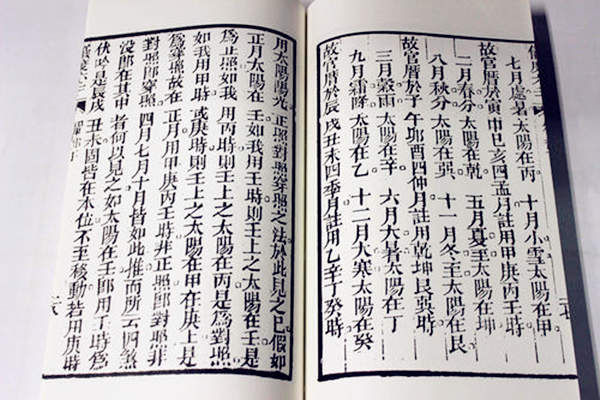 七月處暑太陽在丙 十月小雪太陽在甲
故官曆於寅申巳亥四孟月註用甲庚丙壬時
二月春分太陽在乾 五月夏至太陽在坤
八月秋分太陽在巽 十一月冬至太陽在艮
故官曆於子午卯酉四仲月註用乾坤艮巽時
三月穀雨太陽在辛 六月大暑太陽在丁
九月霜降太陽在乙 十二月大寒太陽在癸
故官曆於辰戌丑未四季月註用乙辛丁癸時
用太陽陽光正照對照穿照之法於此見之已假如
正月太陽在壬如我用壬時則壬上之太陽在壬是
爲正照如我用丙時則壬上之太陽在丙是爲對照
如我用甲時或庚時則壬上之太陽在甲在庚上是
爲穿照故在正月用甲庚丙壬時非正照卽對照非
對照卽穿照四月七月十月皆如此推而所云四煞
没卽在其甲者何以見之如太陽在壬卽用子時爲
伏吟是辰戌丑未固皆在本位不至移動若用庚時